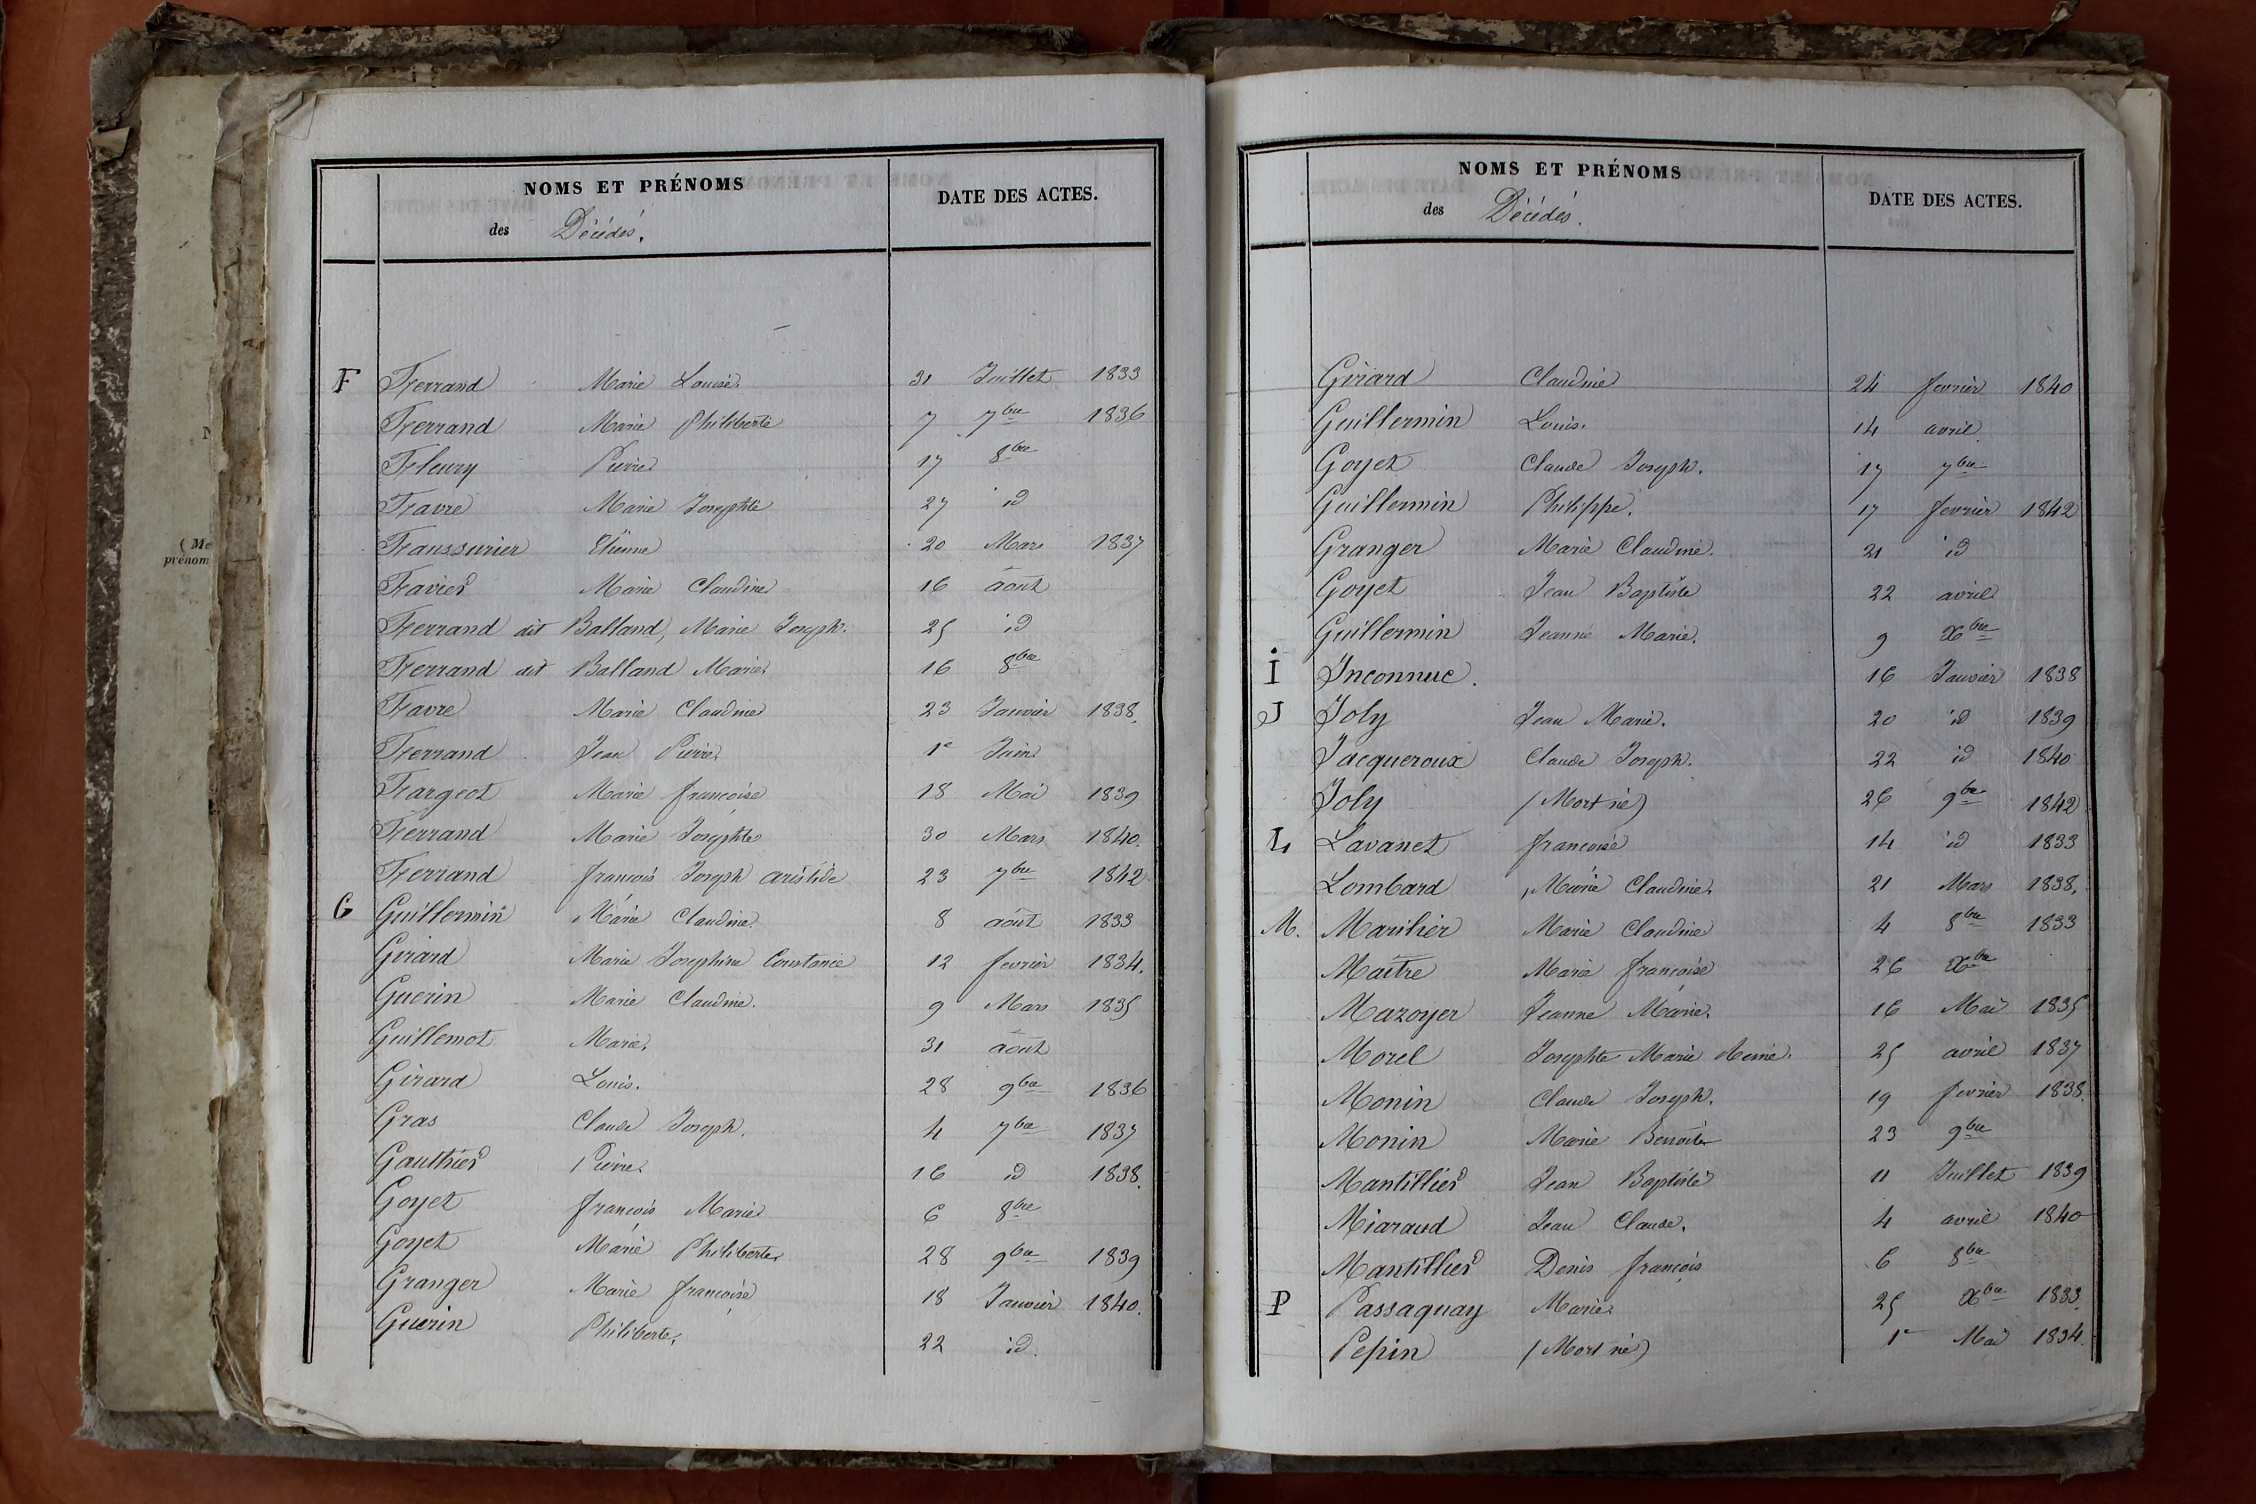 NOMS ET PRÉNOMS
des Décédés.
DATE DES ACTES.
F Ferrand Marie Louise 31 Juillet 1833
Ferrand Marie Philiberte 7 7bre 1836
Fleury Pierre 17 8bre
Favre Marie Josephte 27 id
Faussurier Etienne 20 Mars 1837
Favier Marie Claudine 16 août
Ferrand dit Balland, Marie Joseph. 25 id
Ferrand dit Balland Marie 16 8bre
Favre Marie Claudine 23 Janvier 1838.
Ferrand Jean Pierre 1er Juin
Fargeot Marie françoise 18 Mai 1839
Ferrand Marie Josephte 30 Mars 1840.
Ferrand françois Joseph aristide 23 7bre 1842
G Guillermin Marie Claudine 8 août 1833
Girard Marie Josephine Constance 12 fevrier 1834.
Guerin Marie Claudine. 9 Mars 1835
Guillemot Marie. 31 août
Girard Louis. 28 9bre 1836
Gras Claude Joseph. 4 7bre 1837
Gauthier Pierre 16 id 1838.
Goyet françois Marie 6 8bre
Goyet Marie Philiberte 28 9bre 1839
Granger Marie françoise 18 Janvier 1840.
Guerin Philiberte, 22 id.
NOMS ET PRÉNOMS
des Décédés.
DATE DES ACTES.
Girard Claudine 24 fevrier 1840
Guillermin Louis. 14 avril
Goyet Claude Joseph. 17 7bre
Guillermin Philippe. 17 fevrier 1842
Granger Marie Claudine. 21 id
Goyet Jean Baptiste 22 avril
Guillermin Jeanne Marie. 9 Xbre
I Inconnue. 16 Janvier 1838
J Joly Jean Marie. 20 id 1839
Jacqueroux Claude Joseph. 22 id 1840
Joly (Mort né) 26 9bre 1842
L Lavanet françoise 14 id 1833
Lombard Marie Claudine. 21 Mars 1838.
M. Marilier Marie Claudine 4 8bre 1833
Maitre Marie françoise 26 Xbre
Mazoyer Jeanne Marie. 16 Mai 1835
Morel Josephte Marie Reine. 25 avril 1837
Monin Claude Joseph. 19 fevrier 1838.
Monin Marie Benoite 23 9bre
Mantillier Jean Baptiste 11 Juillet 1839
Miaraud Jean Claude. 4 avril 1840
Mantillier Denis françois 6 8bre
P Passaquay Marie 25 Xbre 1833.
Pepin (Mort né) 1er Mai 1834.
(Me
prénom